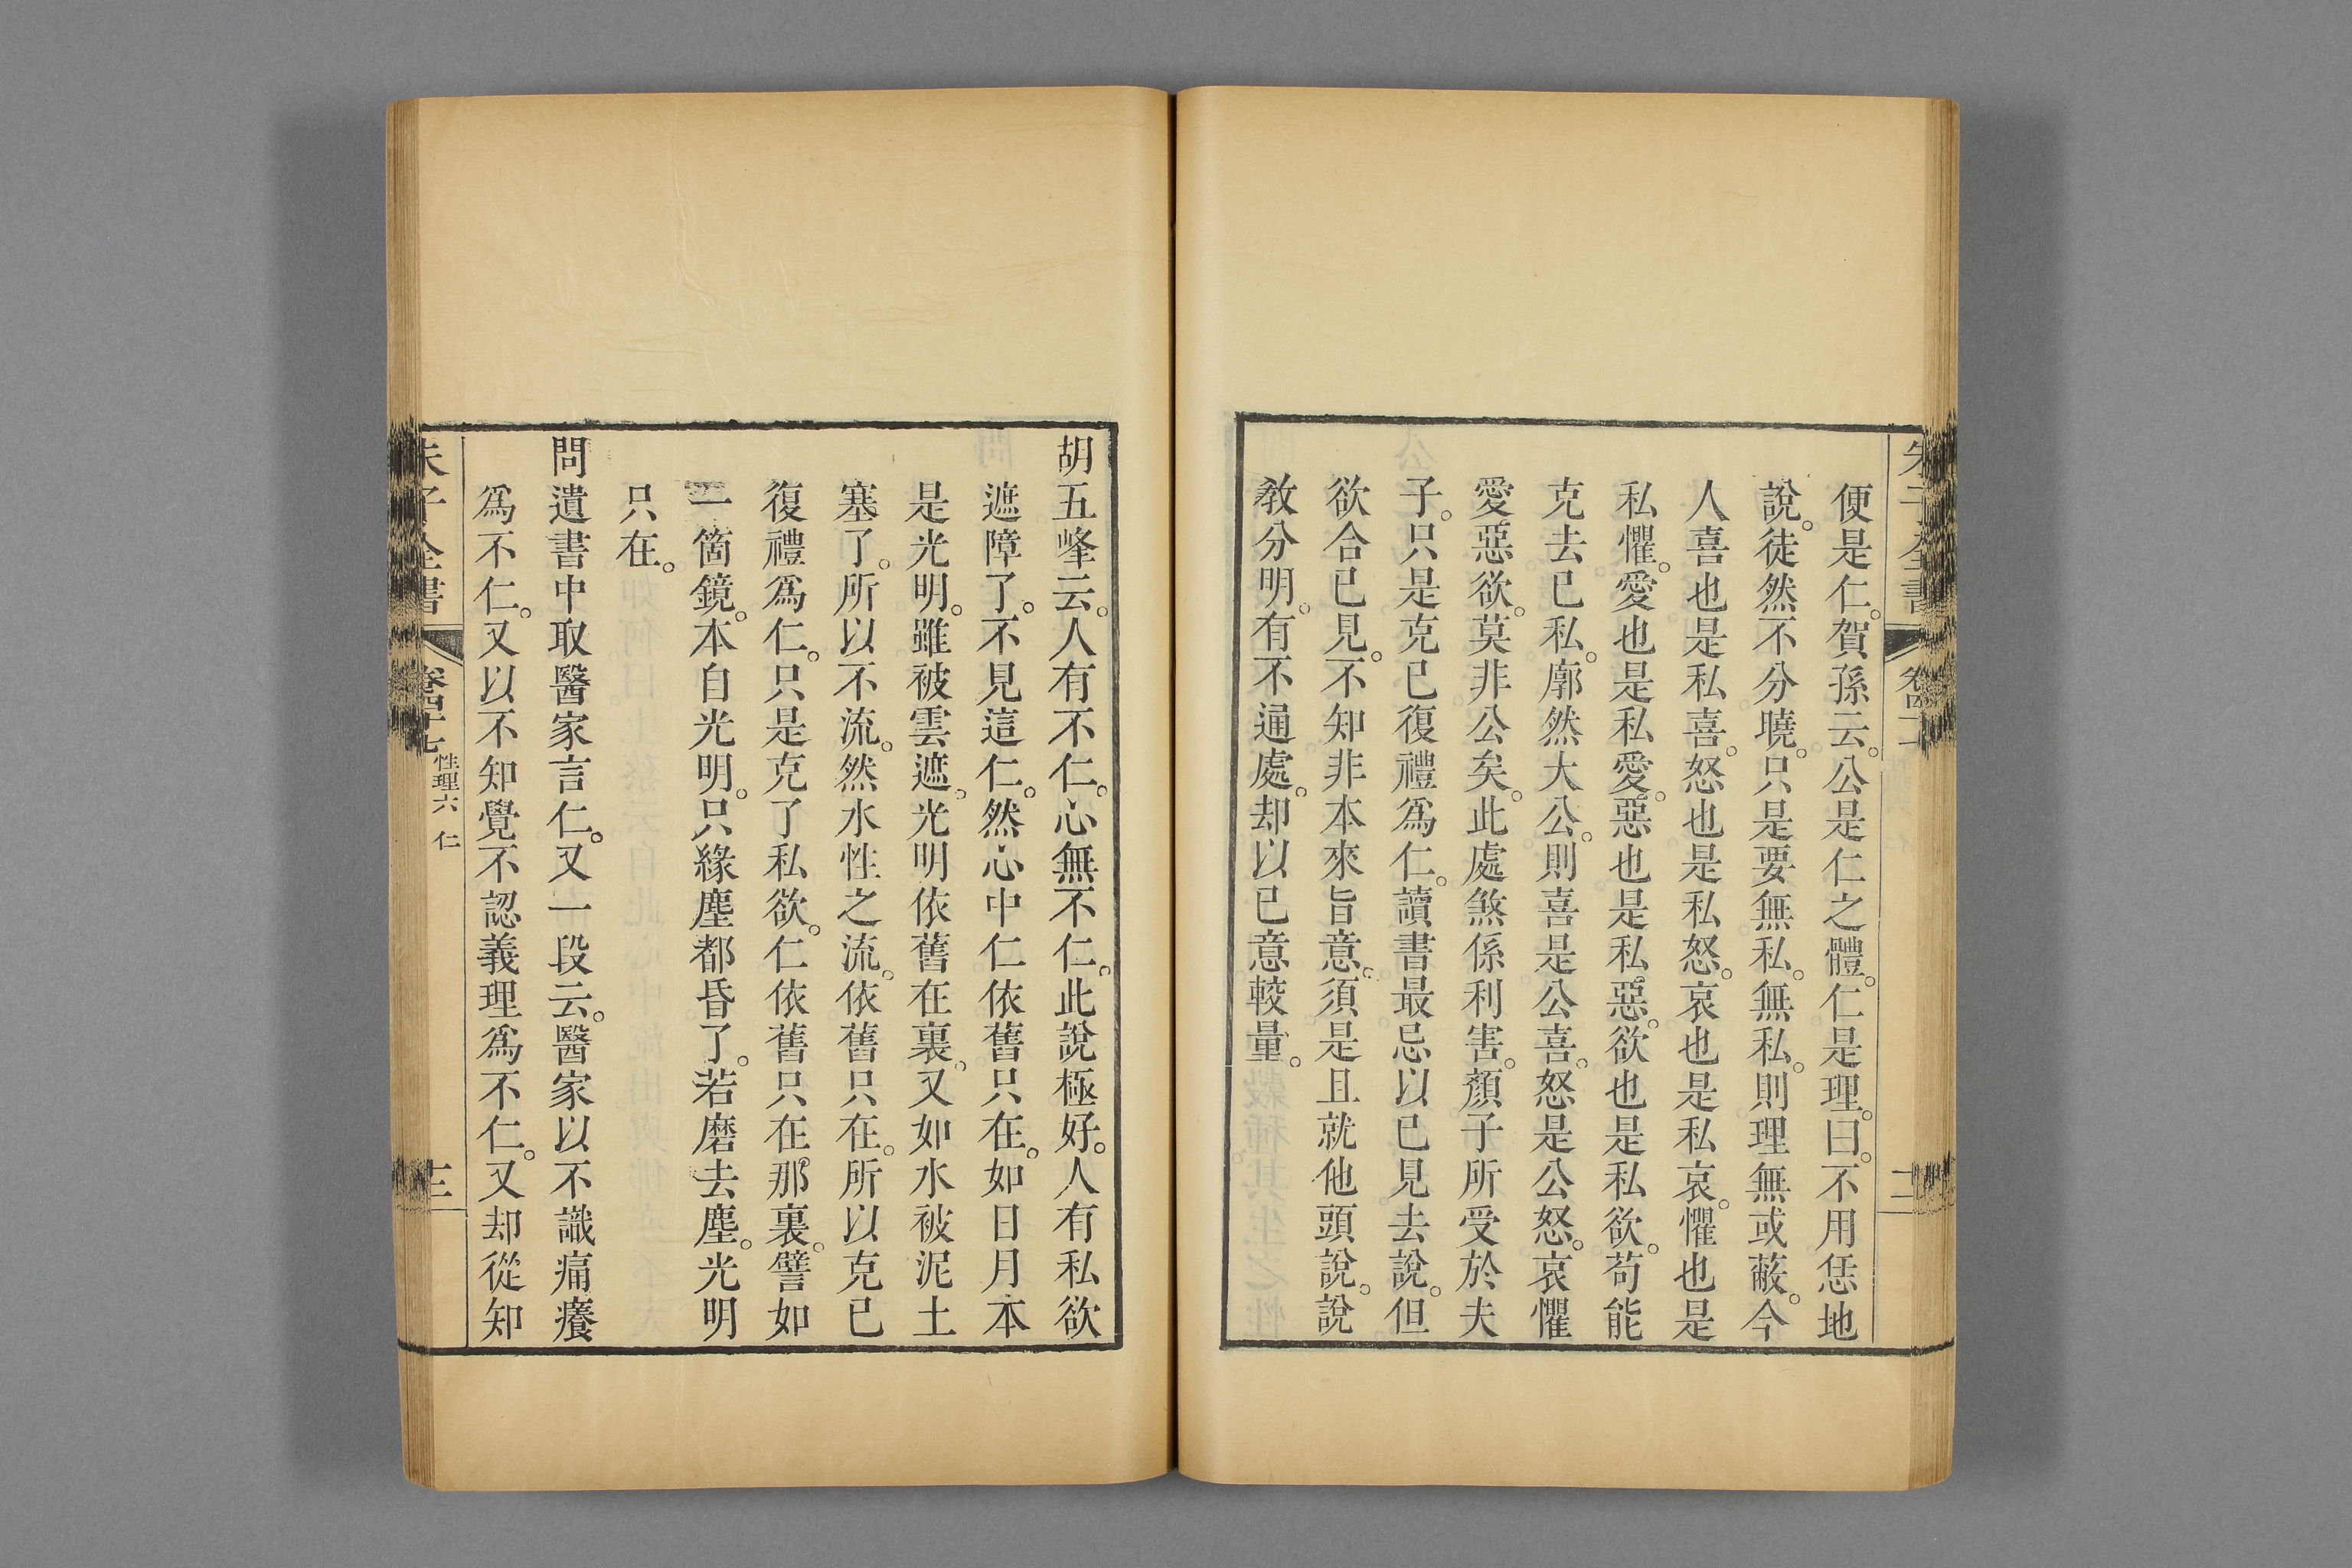 便是仁。賀孫云。公是仁之體。仁是理。曰。不用恁地
說。徒然不分曉。只是要無私。無私。則理無或蔽。今
人喜也是私喜。怒也是私怒。哀也是私哀。懼也是
私懼。愛也是私愛。惡也是私惡。欲也是私欲。苟能
克去已私。廓然大公。則喜是公喜。怒是公怒。哀懼
愛惡欲。莫非公矣。此處煞係利害。顏子所受於夫
子。只是克已復禮爲仁。讀書最忌以已見去說。但
欲合已見。不知非本來旨意。須是且就他頭說。說
教分明。有不通處。却以已意較量。
胡五峰云。人有不仁。心無不仁。此說極好。人有私欲
遮障了。不見這仁。然心中仁依舊只在。如日月本
是光明。雖被雲遮。光明依舊在裏。又如水被泥土
塞了。所以不流。然水性之流。依舊只在。所以克已
復禮爲仁。只是克了私欲。仁依舊只在那裏。譬如
一箇鏡。本自光明。只緣塵都昏了。若磨去塵。光明
只在。
問遺書中取醫家言仁。又一段云。醫家以不識痛癢
爲不仁。又以不知覺不認義理爲不仁。又却從知
朱子全書
卷四十七 性理六 仁
十三